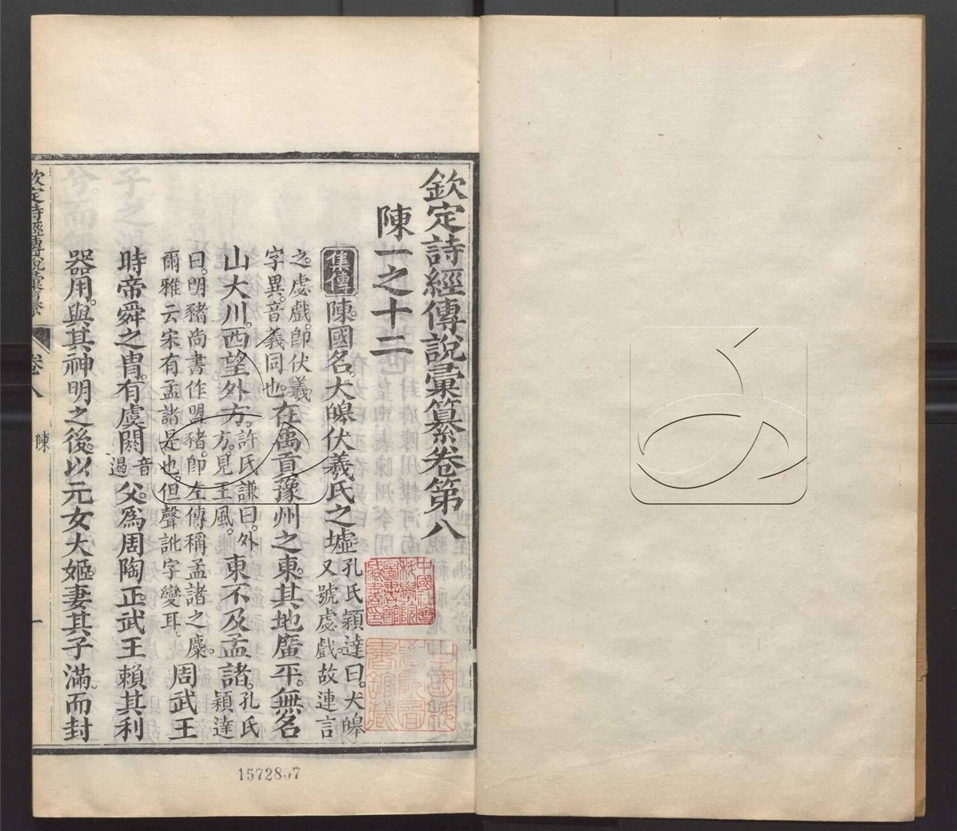 欽定詩經傳說彙纂卷第八
陳一之十二
集傳陳國名大皞伏羲氏之墟孔氏穎達曰大皞又號虙戲故連言
之虙戲卽伏羲字異音義同也在禹貢豫州之東其地廣平無名
山大川西望外方許氏謙曰外方見王風東不及孟諸孔氏穎達
曰明豬尚書作盟豬卽左傳稱孟諸之麋爾雅云宋有孟諸是也但聲訛字變耳周武王
時帝舜之胄有虞閼音遏父爲周陶正武王賴其利
器用與其神明之後以元女大姬妻其子滿而封
欽定詩經傳說彙纂 卷八 陳 一